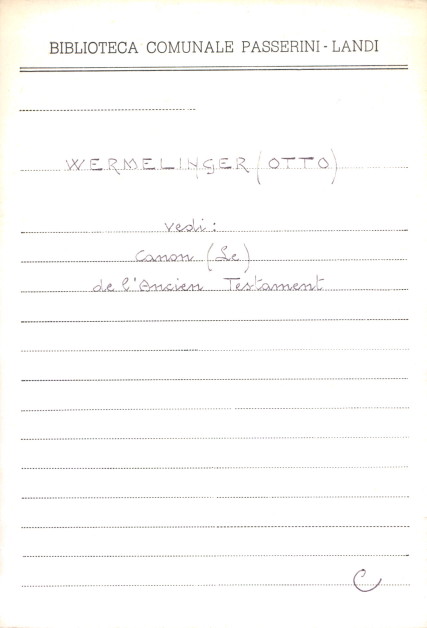 BIBLIOTECA COMUNALE PASSERINI - LANDI
WERMELINGER (OTTO)
vedi:
Canon (Le)
de l'Ancien Testament
C